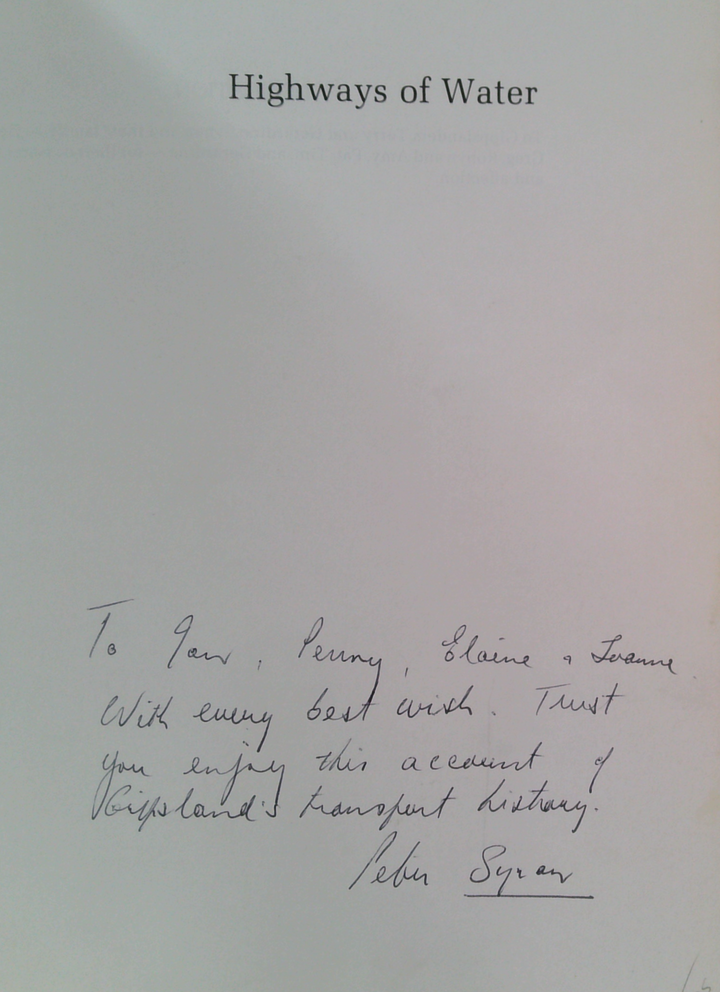 Highways of Water
To Ian, Penny, Elaine & Joanne
With every best wish. Trust
you enjoy this account of
Gippsland's transport history.
Peter Syran